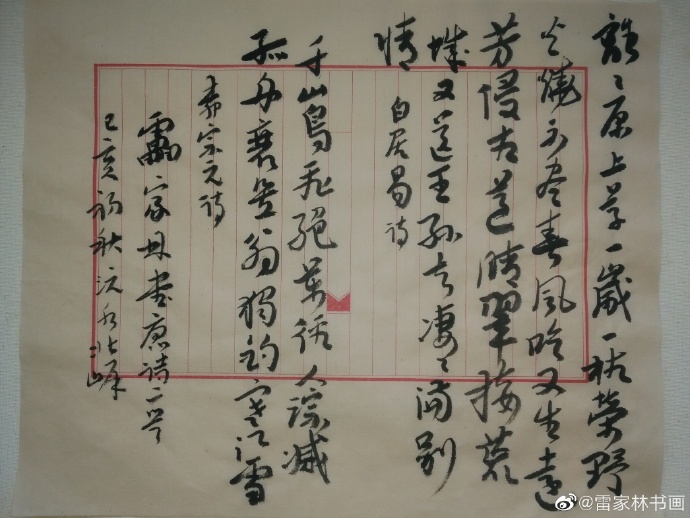 離〻原上草一歲一枯榮野
火燒不盡春風吹又生遠
芳侵古道晴翠接荒
城又送王孫去淒〻滿別
情 白居易詩
千山鳥飛絕萬徑人踪滅
孤舟蓑笠翁獨釣寒江雪
柳宗元詩
雷家林書唐詩二首
己亥初秋沅水北
@雷家林书画